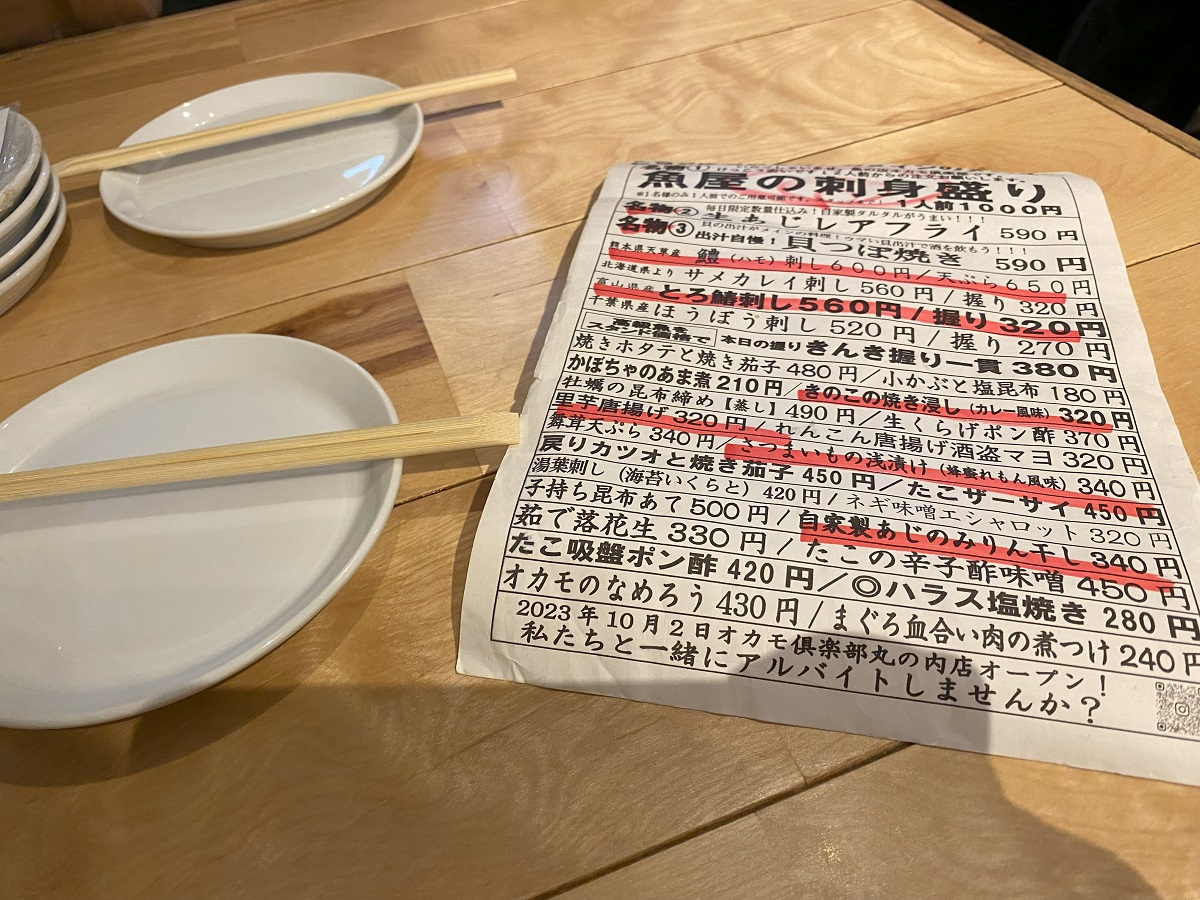 魚屋の刺身盛り 1人前1000円
※1名様のみ1人前でのご用意可能です。
名物② 毎日限定数量仕込み!自家製タルタルがうまい!!!
生あじレアフライ 590円
名物③ 出汁自慢! 貝つぼ焼き 590円
熊本県天草産 鱧(ハモ)刺し600円/天ぷら650円
北海道県より サメカレイ刺し560円/握り320円
富山県産 とろ鰆刺し560円/握り320円
千葉県産 ほうぼう刺し520円/握り270円
高級魚を スタンド価格で 本日の握り きんき握り一貫380円
焼きホタテと焼き茄子480円/小かぶと塩昆布180円
かぼちゃのあま煮210円/きのこの焼き浸し(カレー風味)320円
牡蠣の昆布締め【蒸し】490円/生くらげポン酢370円
里芋唐揚げ320円/れんこん唐揚げ酒盗マヨ320円
舞茸天ぷら340円/さつまいもの浅漬け(蜂蜜れもん風味)340円
戻りカツオと焼き茄子450円/たこザーサイ450円
湯葉刺し(海苔いくらと)420円/ネギ味噌エシャロット320円
子持ち昆布あて500円/自家製あじのみりん干し340円
茹で落花生330円/たこの辛子酢味噌450円
たこ吸盤ポン酢420円/◎ハラス塩焼き280円
オカモのなめろう430円/まぐろ血合い肉の煮つけ240円
2023年10月2日オカモ倶楽部丸の内店オープン!
私たちと一緒にアルバイトしませんか?